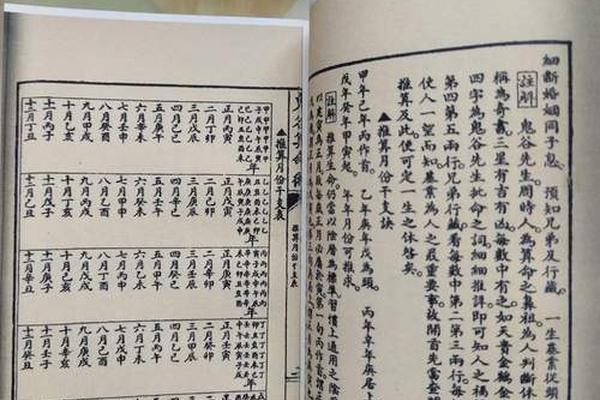 細斷婚姻同子息 預知兄弟及行藏 一生基業從頭
註解 鬼谷先生。周時人。為算命之鼻祖。為人判斷休
稱為奇書。三星有吉有凶。每數中有之。如天貴金
四字為鬼谷先生批命之詞。細細推詳即可知人之禍
第四第五兩行。兄弟行藏。看每數中第二第三兩行。每
使人一望而知。基業為人之最重要事。故開首先
推算及此。便可定一生之休咎矣。
▲推算月份干支訣
甲年己年丙作首。 乙年庚年戊為頭。 丙年辛年庚居上
戊年癸年甲寅起。 年年月份可推求。
註解 推算生命。仍當以陰曆為標準。習慣上通用之陰
以建寅為正月。故每歲正月必屬於寅。第一句丙作首。謂正
鬼谷算命術
推算月份干支表
▲推算月份干支表
年
正月丙寅
二月丁卯
三月戊辰
四月己巳
五月庚午
六月辛未
七月壬申
八月癸酉
九月甲戌
十月乙亥
十一月丙子
十二月丁丑
年
正月戊寅
二月己卯
三月庚辰
四月辛巳
五月壬午
六月癸未
七月甲申
八月乙酉
九月丙戌
十月丁亥
十一月戊子
十二月己丑
年
正月庚寅
二月辛卯
三月壬辰
四月癸巳
五月甲午
六月乙未
七月丙申
八月丁酉
九月戊戌
十月己亥
十一月庚子
十二月辛丑
年
正月壬寅
二月癸卯
三月甲辰
四月乙巳
五月丙午
六月丁未
七月戊申
八月己酉
九月庚戌
十月辛亥
十一月壬子
十二月癸丑